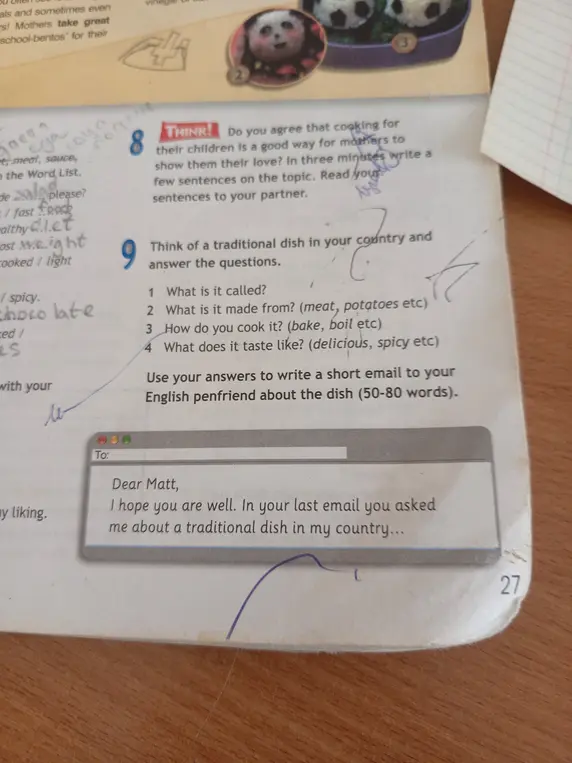 als and sometimes even
s! Mothers take great
school-bentos' for their
2
3
8 THINK! Do you agree that cooking for
their children is a good way for mothers to
show them their love? In three minutes write a
few sentences on the topic. Read your
sentences to your partner.
t, meat, sauce,
the Word List.
de salad please?
/ fast
althy diet
ost weight
ooked / light
/ spicy.
choco late
ed /
with your
y liking.
9 Think of a traditional dish in your country and
answer the questions.
1 What is it called?
2 What is it made from? (meat, potatoes etc)
3 How do you cook it? (bake, boil etc)
4 What does it taste like? (delicious, spicy etc)
Use your answers to write a short email to your
English penfriend about the dish (50-80 words).
To:
Dear Matt,
I hope you are well. In your last email you asked
me about a traditional dish in my country...
27